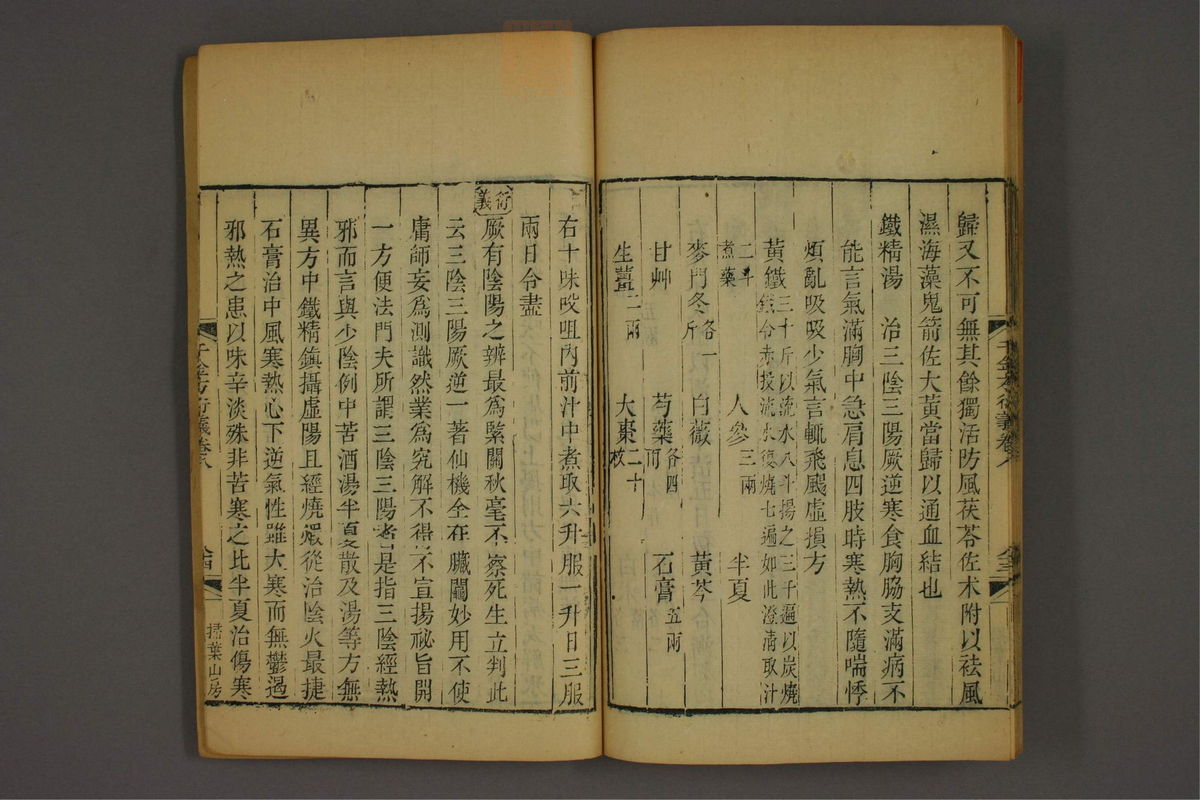 歸又不可無其餘獨活防風茯苓佐术附以祛風
濕海藻鬼箭佐大黃當歸以通血結也
鐵精湯　治三陰三陽厥逆寒食胸脇支滿病不
能言氣滿胸中急肩息四肢時寒熱不隨喘悸
煩亂吸吸少氣言輒飛颺虛損方
黃鐵三十斤以流水八斗揚之三千遍以炭燒
鐵令赤投流水復燒七遍如此澄清取汁
二斗煮藥　人參三兩　半夏
麥門冬各一斤　白薇　黃芩
甘艸　芍藥各四兩　石膏五兩
生薑二兩　大棗二十枚
千金方衍義卷八
右十味㕮咀內前汁中煮取六升服一升日三服
兩日令盡
衍義
厥有陰陽之辨最爲緊關秋毫不察死生立判此
云三陰三陽厥逆一著仙機全在臟關妙用不使
庸師妄爲測識然業爲究解不得不宣揚祕旨開
一方便法門夫所謂三陰三陽者是指三陰經熱
邪而言與少陰例中苦酒湯半夏散及湯等方無
異方中鐵精鎮攝虛陽且經燒煆從治陰火最捷
石膏治中風寒熱心下逆氣性雖大寒而無鬱遏
邪熱之患以味辛淡殊非苦寒之比半夏治傷寒
千金方衍義卷八
掃葉山房